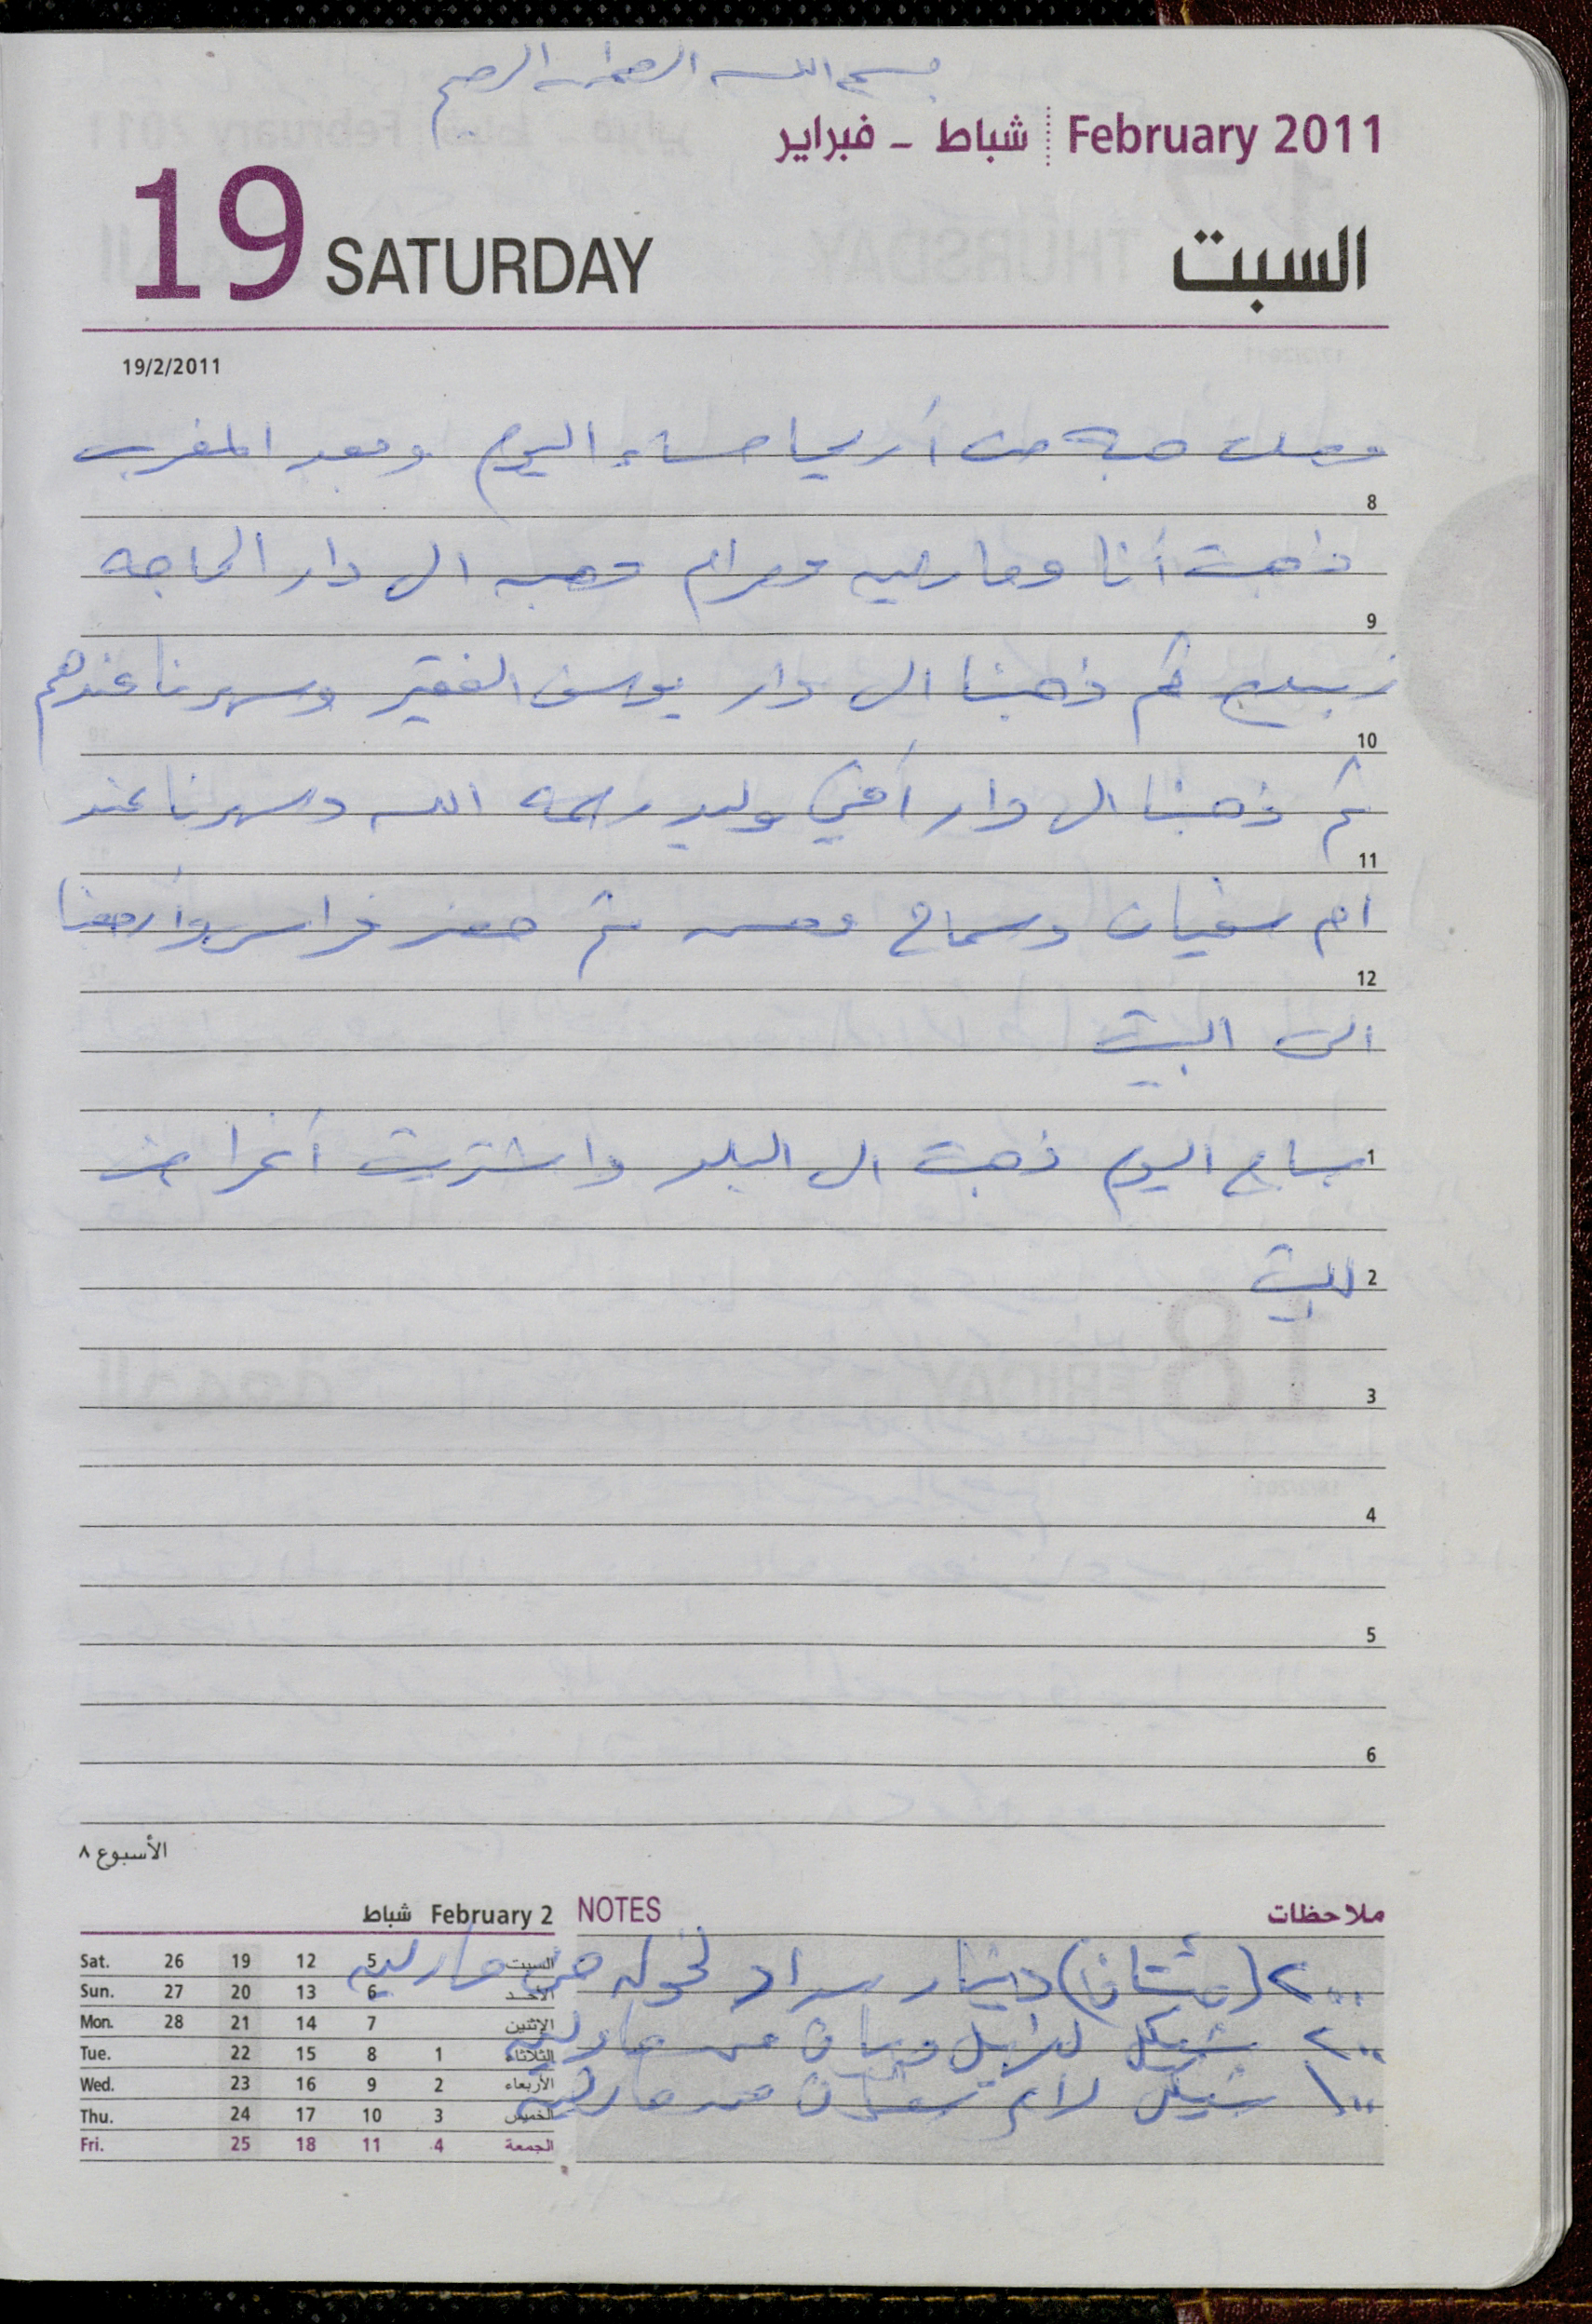 بسم الله الرحمن الرحيم
February 2011 شباط - فبراير
19 SATURDAY السبت
19/2/2011
وصلت هبه من أريحا مساء اليوم وبعد المغرب
8
ذهبت أنا وماريه ومرام وهبه الى دار الحاجه
9
ثم ذهبنا الى دار يوسف الفقير وسهرنا عندهم
10
ثم ذهبنا الى دار أخي وليد رحمه الله وسهرنا عند
11
ام سفيان وسماح ثم حضر فراس وأرجعنا
12
الى البيت
1
صباح اليوم ذهبت الى البلد واشتريت أغراض
2
للبيت
3
4
5
6
الأسبوع ٨
February 2 شباط
Sat. 26 19 12 5 السبت
Sun. 27 20 13 6 الأحد
Mon. 28 21 14 7 الإثنين
Tue. 22 15 8 1 الثلاثاء
Wed. 23 16 9 2 الأربعاء
Thu. 24 17 10 3 الخميس
Fri. 25 18 11 4 الجمعة
NOTES ملاحظات
٢٠٠ (مئتان) دينار سداد لخوله من ماريه
٢٠٠ شيكل من ماريه
١٠٠ شيكل لام سفيان من ماريه